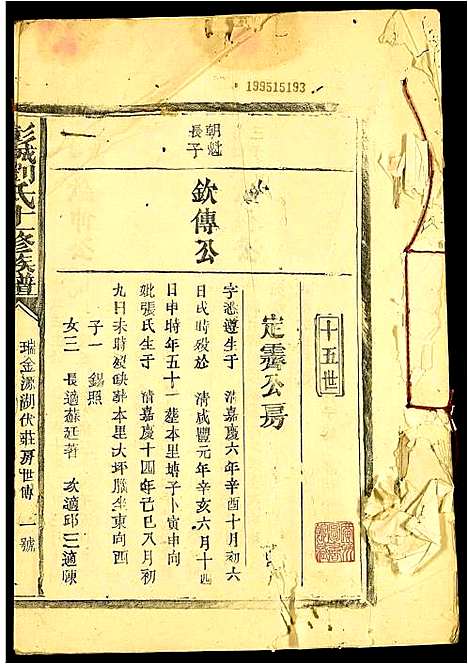 199515193
十五世
定霽公房
朝魁
長子
欽傳公
一
字憑遵生于 清嘉慶六年辛酉十月初六
日戌時殁於 清咸豐元年辛亥六月十四
日申時年五十一塟本里塘子卜寅申向
妣張氏生于 清嘉慶十四年己巳八月初
九日未時殁缺塟本里大坪腦坐東向西
子一 錫照
女三 長適蘇廷著 次適邱 三適陳
彭城劉氏十修族譜
瑞金源湖伏莊房世傳
一號